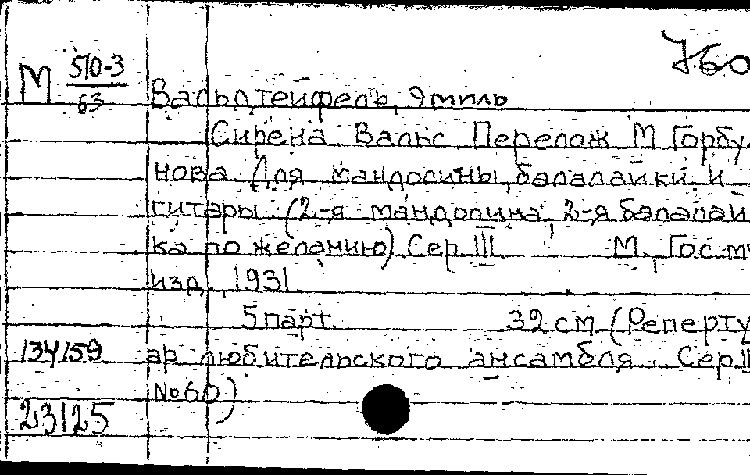 760
М 510-3
63
Вальдтейфель, Эмиль
Сирена Вальс Перелож М Горбу-
нова Для мандолины, балалайки и
гитары (2-я мандолина, 2-я балалай
ка по желанию) Сер III М, Гос.му
изд, 1931
5 парт 32 см (Реперту
134159 ар любительского ансамбля. Сер II
№60)
23125